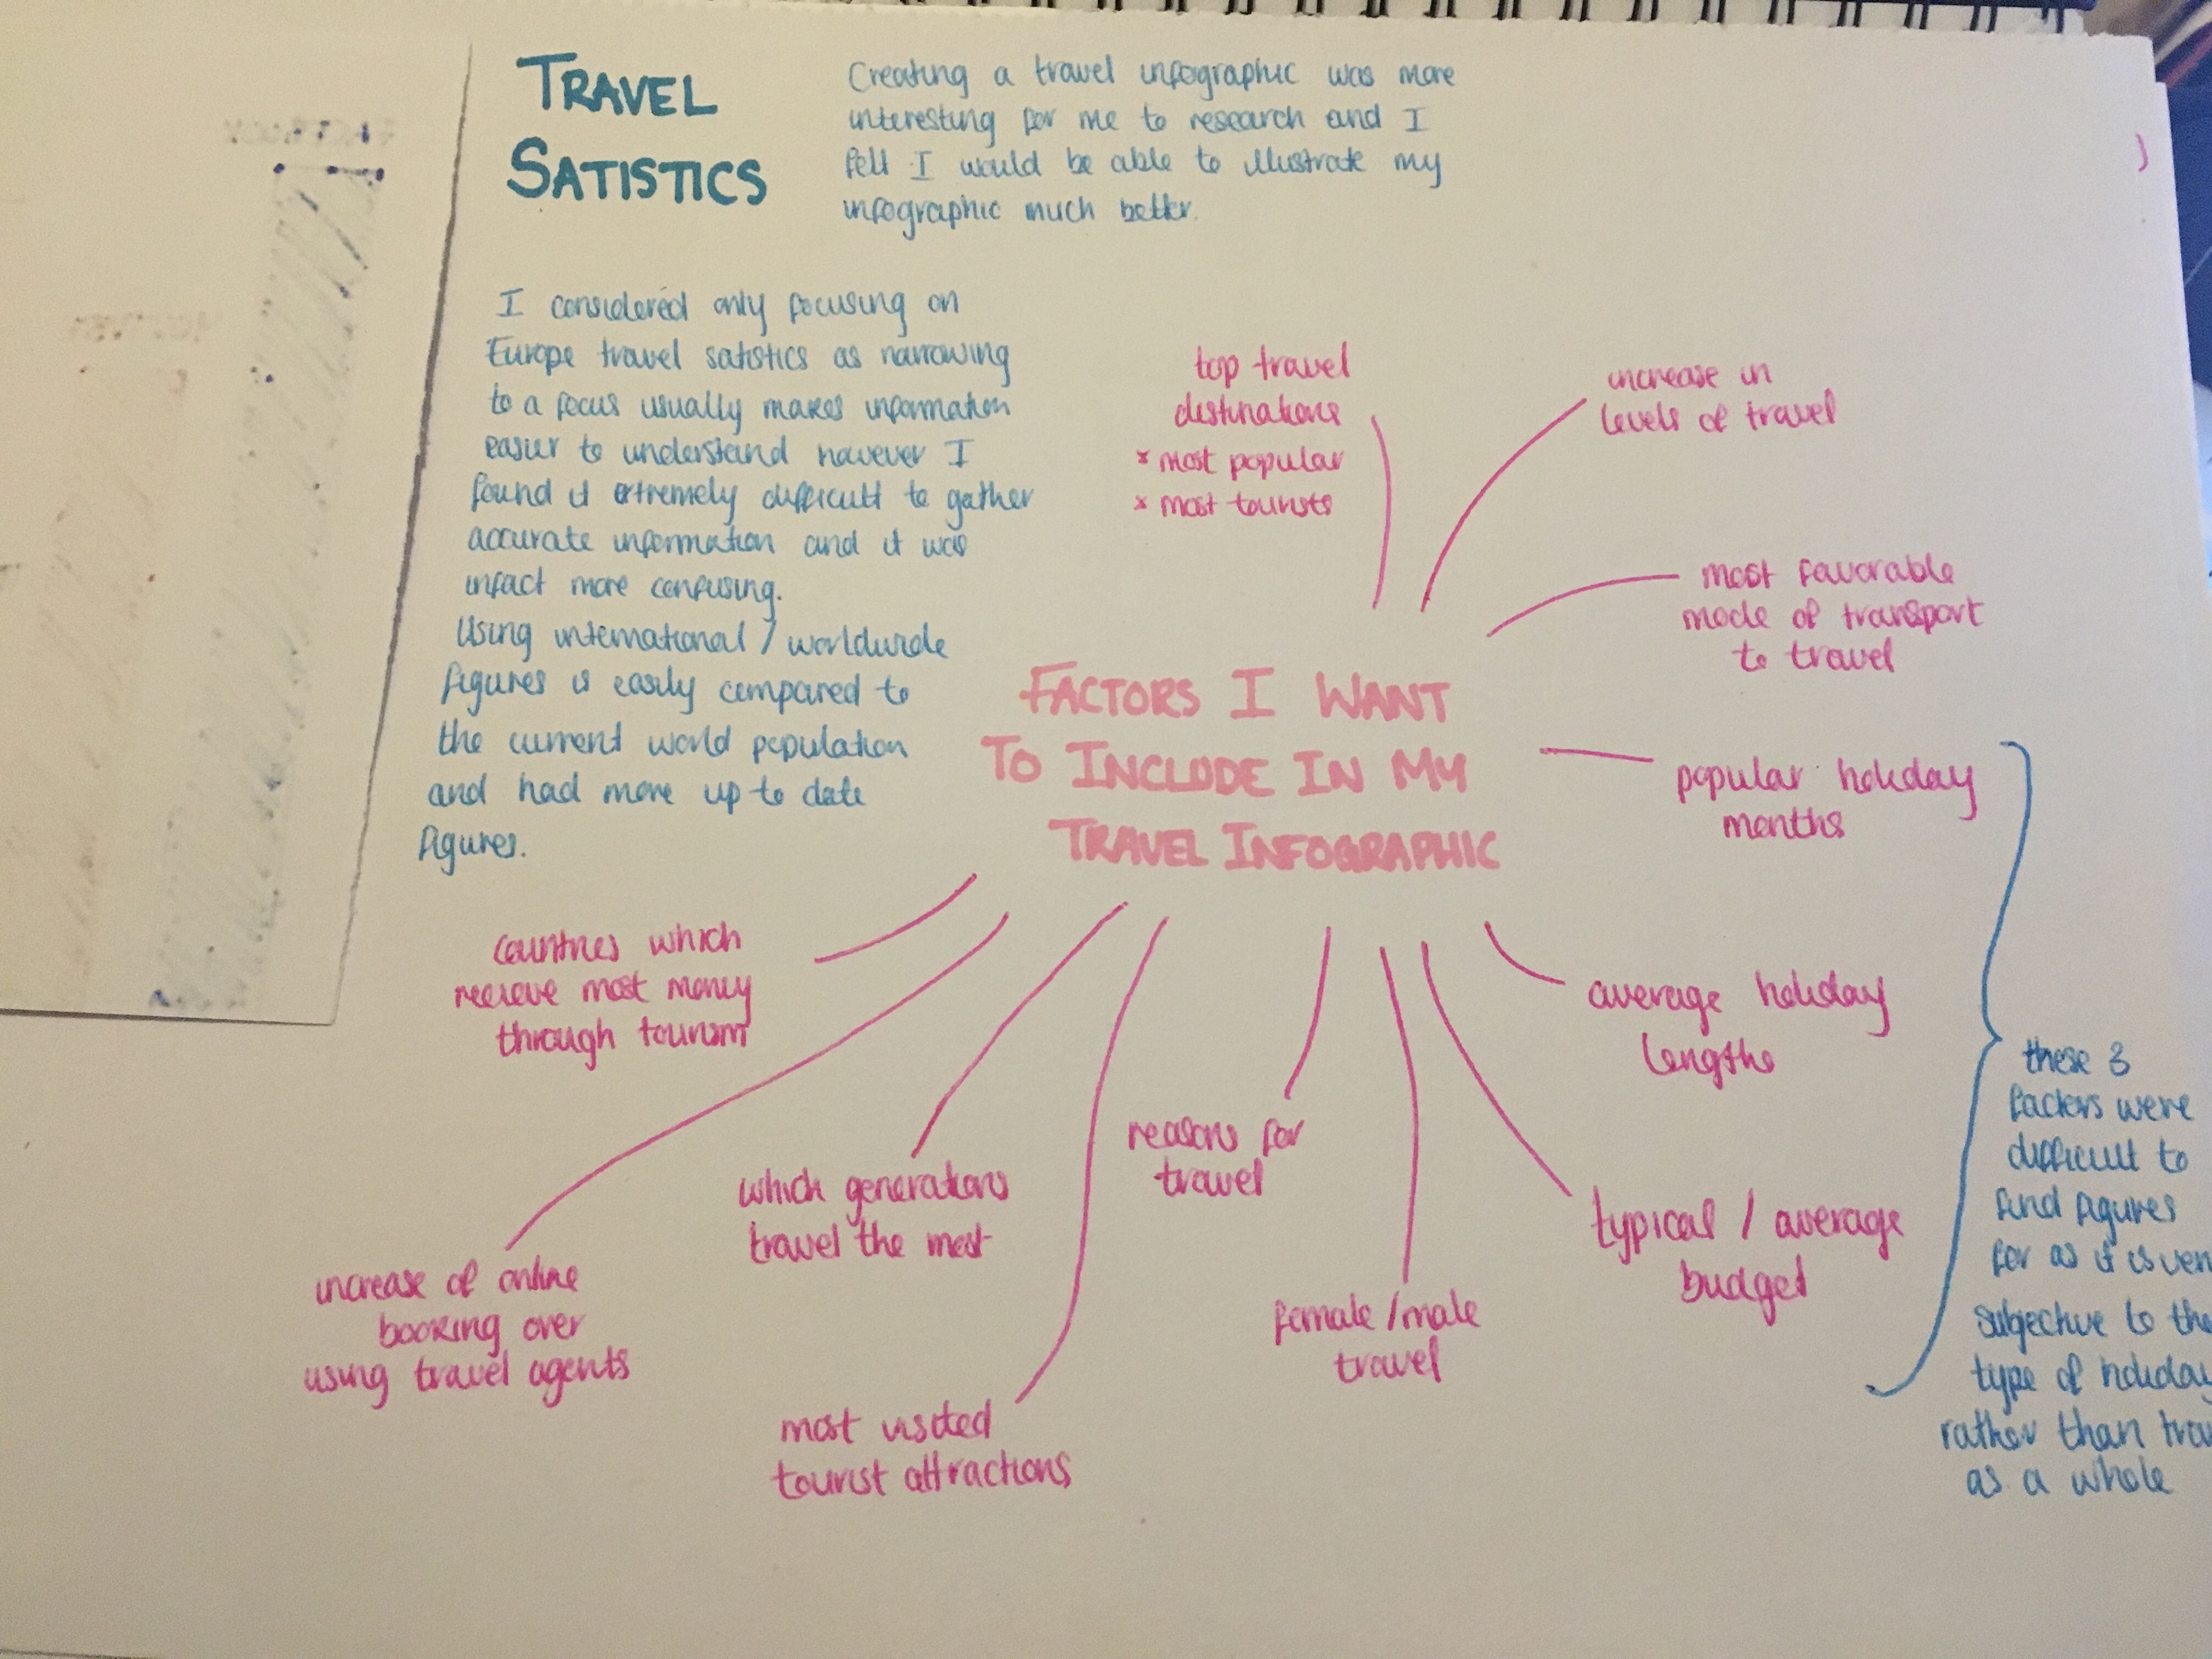 TRAVEL
SATISTICS
Creating a travel infographic was more
interesting for me to research and I
felt I would be able to illustrate my
infographic much better.
I considered only focusing on
Europe travel satistics as narrowing
to a focus usually makes information
easier to understand however I
found it extremely difficult to gather
accurate information and it was
infact more confusing.
Using international / worldwide
figures is easily compared to
the current world population
and had more up to date
figures.
FACTORS I WANT
TO INCLUDE IN MY
TRAVEL INFOGRAPHIC
top travel
destinations
* most popular
* most tourists
increase in
levels of travel
most favorable
mode of transport
to travel
popular holiday
months
average holiday
lengths
typical / average
budget
these 3
factors were
difficult to
find figures
for as it is
subjective to
type of holiday
rather than
as a whole
female / male
travel
reasons for
travel
most visited
tourist attractions
which generations
travel the most
increase of online
booking over
using travel agents
countries which
recieve most money
through tourism